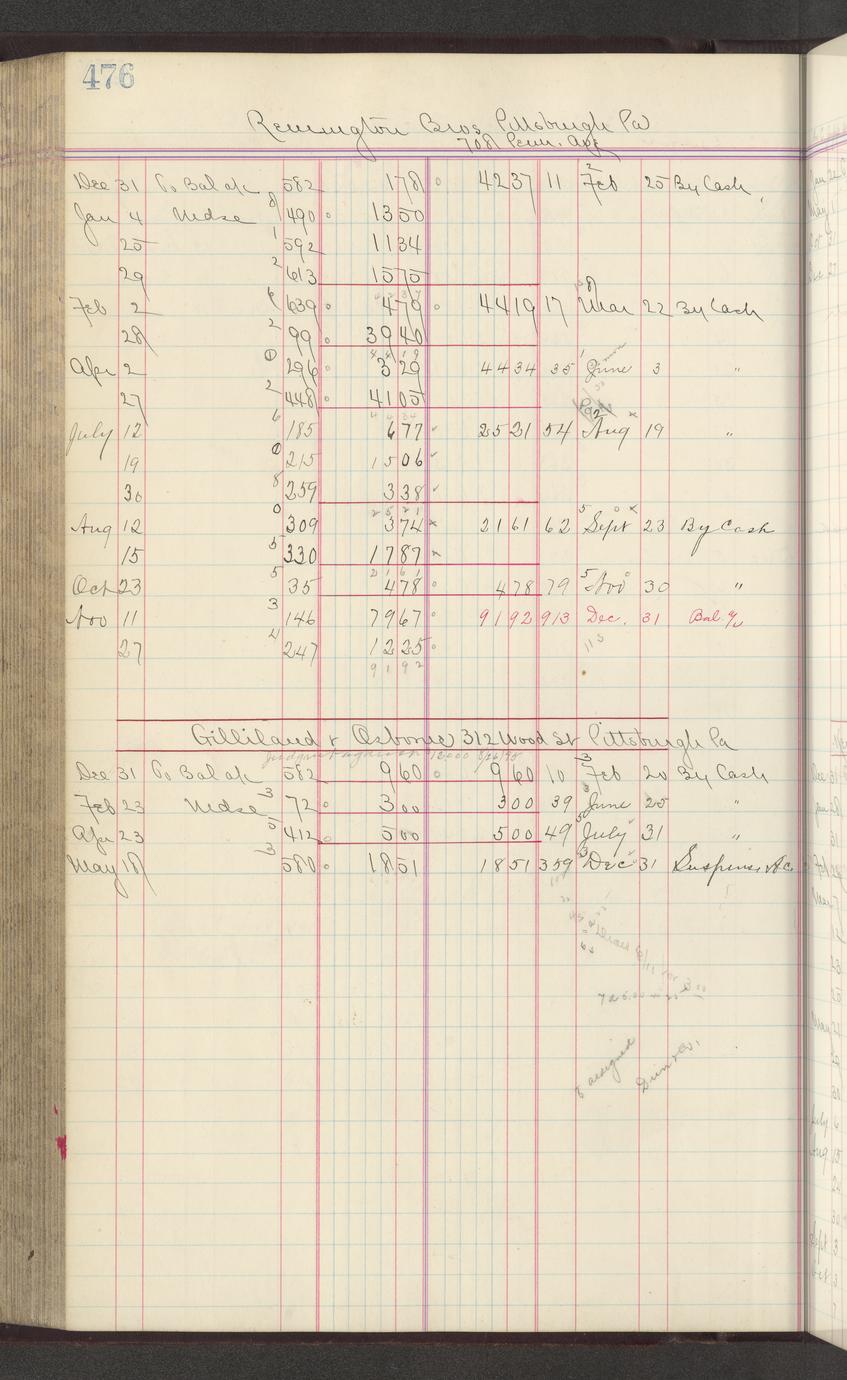 476
Remington Bros. Pittsburgh Pa
708 Penn. Ave
Dec 31 To Bal a/c 582 178 4237 11 2 Feb 25 By Cash
Jan 4 Mdse 8 490 1350
25 1 592 1134
29 2 613 1575
4237
Feb 2 639 479 4419 17 8 Mar 22 By Cash
28 2 99 3940
4419
Apr 2 0 296 329 4434 35 1 June 3 "
27 2 448 4105
4434
July 12 6 185 677 2521 54 2 Aug 19 "
19 0 215 1506
30 8 259 338
2521
Aug 12 0 309 374 2161 62 5 Sept 23 By Cash
15 5 330 1787
2161
Oct 23 5 35 478 478 79 5 Nov 30 "
Nov 11 3 146 7967 9192 913 Dec. 31 Bal. a/c
27 4 247 1225
9192
Gilliland & Osborne 312 Wood St Pittsburgh Pa
Judgment against
Dec 31 To Bal a/c 582 960 960 10 3 Feb 20 By Cash
Feb 23 Mdse 3 72 300 300 39 June 25 "
Apr 23 5 412 500 500 49 5 July 31 "
May 18 3 580 1851 1851 359 3 Dec 31 Suspense Ac
assigned
Dun & Co.